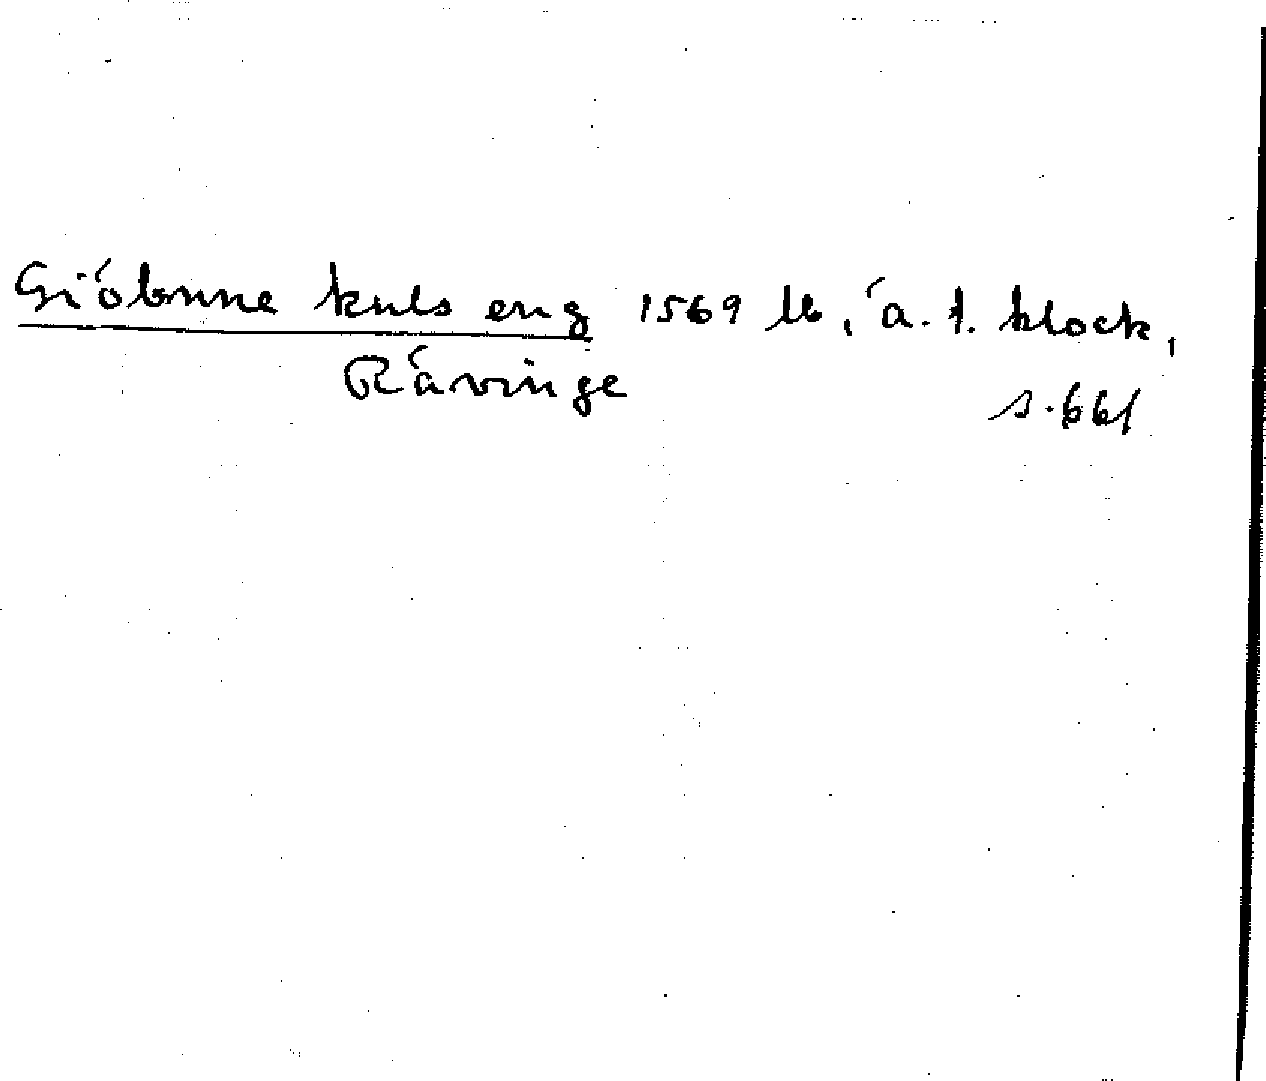 Gióbnne kuls eng 1569 lb, á. t. klock,
Rávinge
s. 661